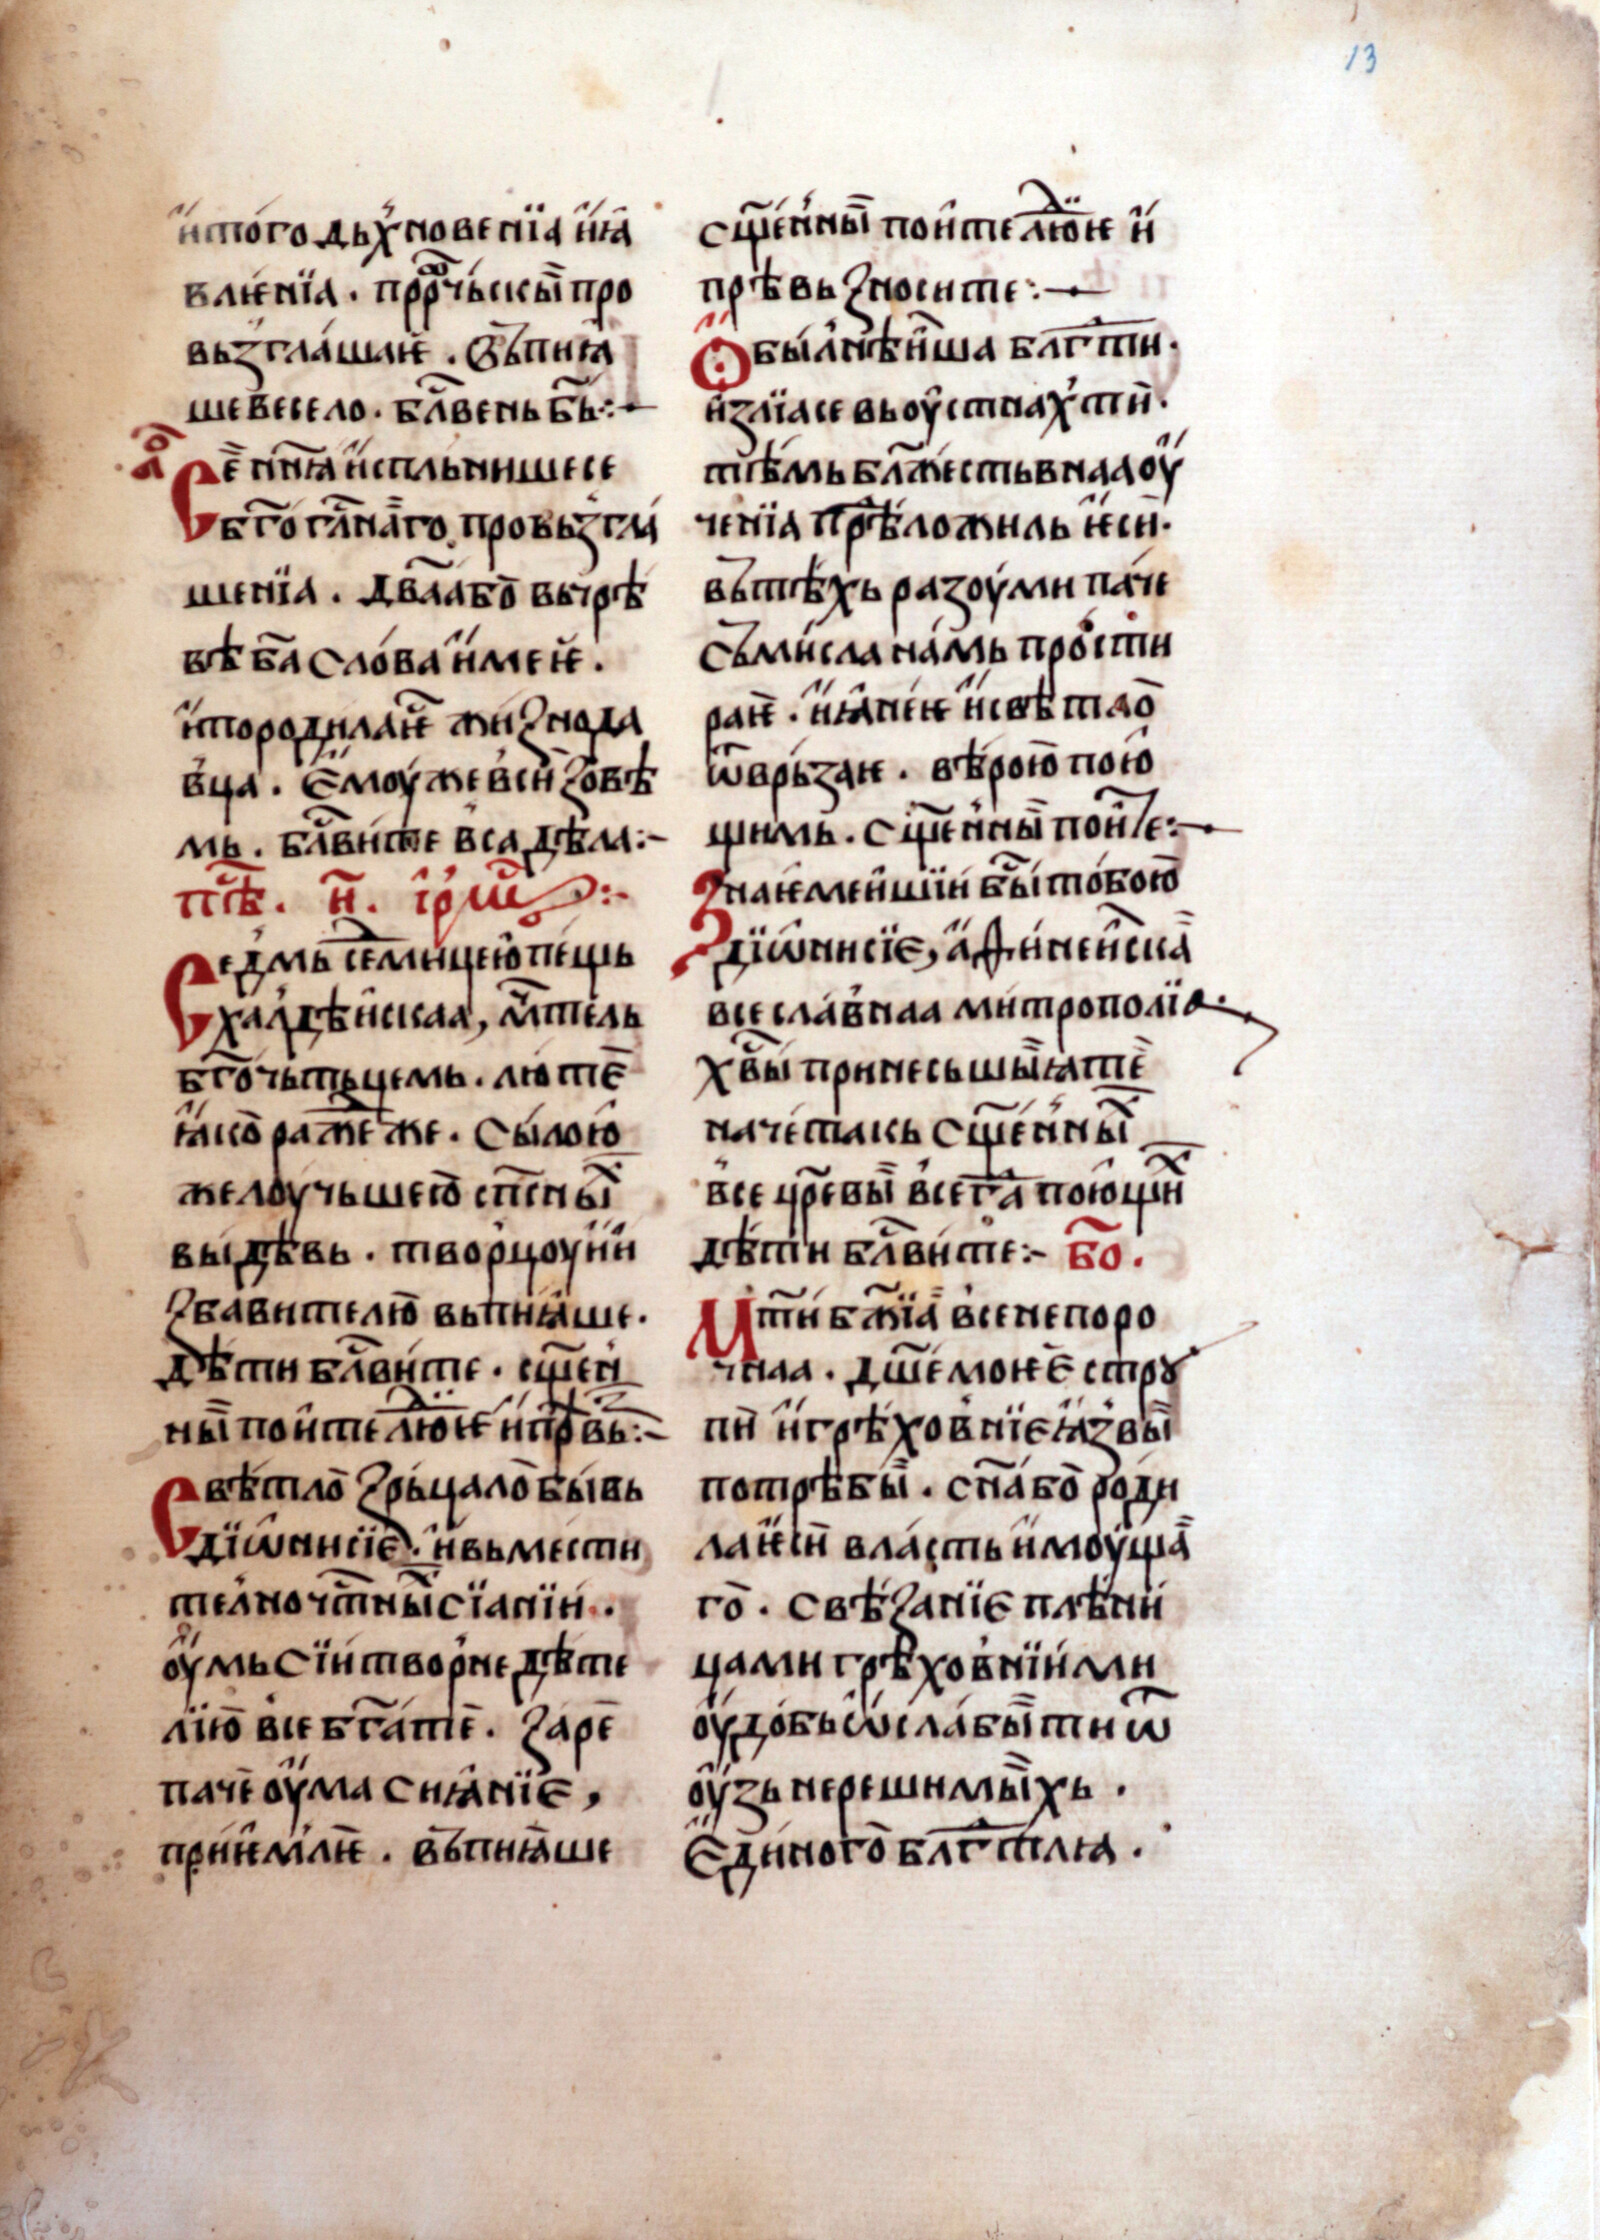 13
и҆ того дьх҆новенїа и҆ ꙗ
влѥнїа. прⷪ҇рчьскы̏ про
вьзглашаѥ. Вьпиꙗ
ше весело. блⷭ҇вень бь҃:·
Се нн҃ꙗ и҆спльнишесе
бг҃огл҃наго провьзгла
шенїа. дв҃аа бо вь чрѣ
вѣ ба҃ слова и҆меѥ.
и҆ породилаѥ жизнода
вца. Ємоуже вси зовѣ
мь. блⷭ҇вите вса дѣла:~
пѣⷭ҇. и҃. і҆рмⷭ҇:~
Седмь седмыцею пещь
халдѣйскаа, мч҃тель
бг҃очьтьцемь. лютѣ
ꙗ҆ко ражеже. Сылою
же лоучьшею сп҃сныⷯ
выдѣвь. творцоу и҆ и
збавителю вьпиꙗше.
дѣти блⷭ҇вите. сщ҃ен
ны̏ поите людїе и҆ прѣвь:~
Светло зрьцало бывь
дїѡ҆нисїе. и҆ вьмести
телно чⷭ҇тны̏ сїанїи.
оу҆мь сїи творне дѣте
лїю все бг҃ате. заре
паче оу҆ма сиꙗнїе,
приѥмлѥ. вьпиꙗше
сщ҃енны̏ поите людїе и҆
прѣвьзносите:·
Обылнѣиша блⷣгти.
и҆злїасе вь оу҆стнах ти.
тѣмь блⷤ҇ествьнаа оу
ченїа прѣложиль ѥси.
вь тѣхь разоуми паче
сьмисла намь прости
раѥ. и҆ ꙗснѥ и҆ свѣтло
ѿврьзаѥ. вѣрою пою
щимь. сщ҃енны̏ поите:·
Знаѥмейшїи бы тобою
дїѡ҆нисїе, а҆ѳинейска
всеславнаа митрополїа.
хв҃ы принесьшы̏ꙗ те
начетакь сщ҃енныⷯ
все црⷭ҇евы̏ всегⷣа поющиⷯ
дѣти блⷭ҇вите:~ бо҃.
Мт҃и бж҃їа всенепоро
чнаа. дш҃е моѥ Є строу
пи и҆ грѣховнїе ꙗзвы̏
потрѣбы̏. сн҃а бо роди
ла ѥси власть и҆моуща
го. свѣзанїе плѣни
цами грѣховнїими
оу҆добь ѡ҆слабы̏ ти ѿ
оу҆зь нерешимы̏хь.
Єдиного блⷣгтлꙗ.